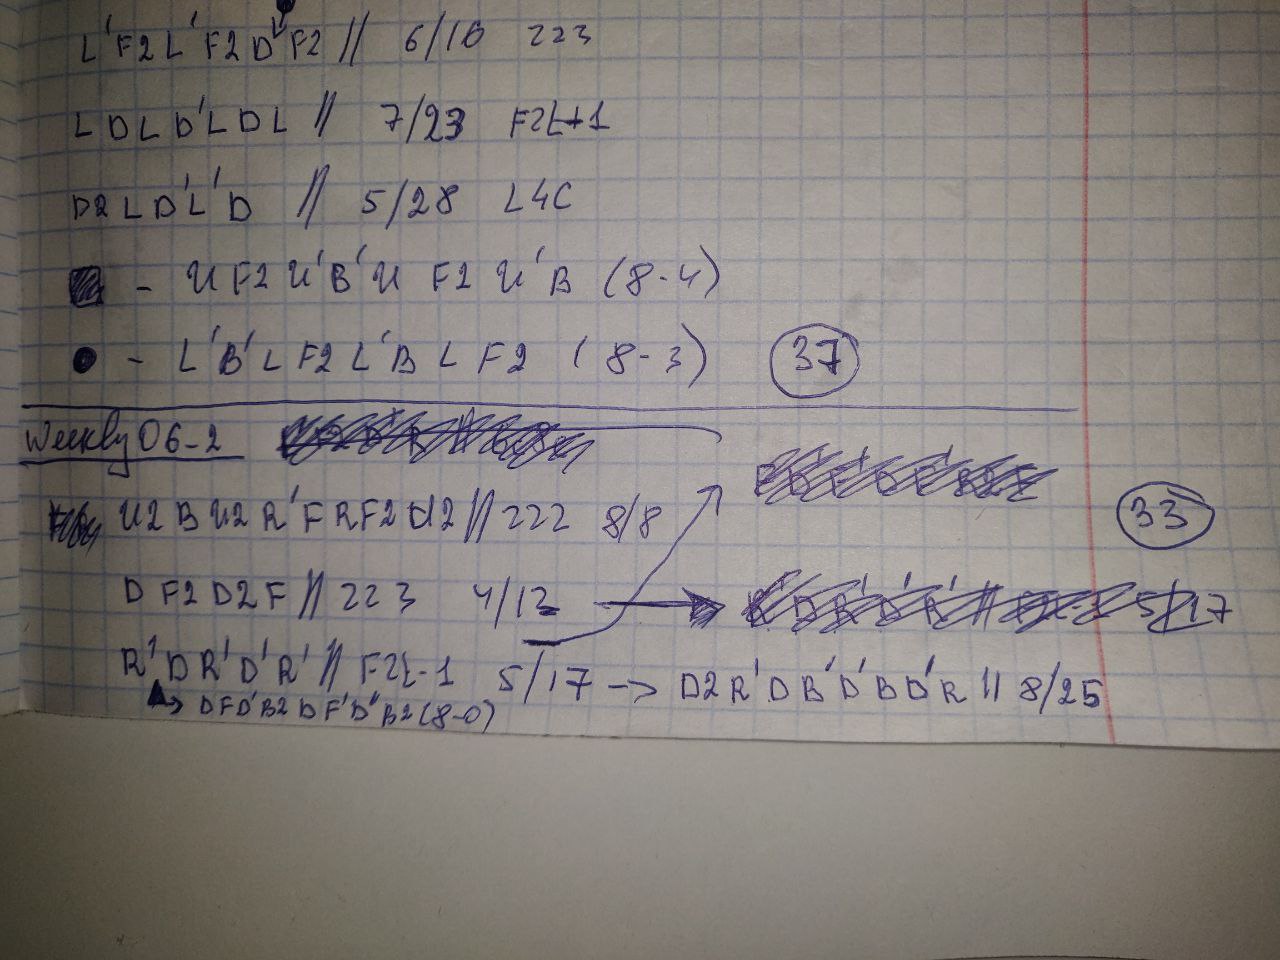 L'F2L'F2D'F2 // 6/16 223
LDLD'LDL // 7/23 F2L+1
D2LD'L'D // 5/28 L4C
- U F2 U'B'U F2 U'B (8-4)
- L'B'L F2 L'B L F2 (8-3) 37
Weekly 06-2
U2 B U2 R'F R F2 U2 // 222 8/8 33
D F2 D2 F // 223 4/12 5/17
R'D R'D'R' // F2L-1 5/17 -> D2 R'D B'D'B D'R // 8/25
DFD'B2DF'D'B2 (8-0)